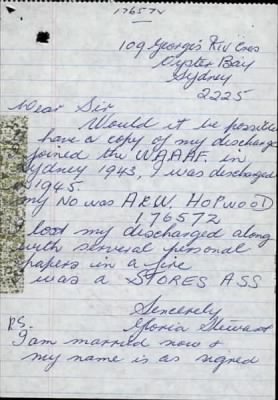 176572
109 Georges Riv Cres
Oyster Bay
Sydney
2225
Dear Sir
Would it be possible
have a copy of my discharge
joined the WAAAF. in
Sydney 1943, I was discharged
1945.
my No was A.C.W. HOPWOOD
176572
I lost my discharged along
with serveral personal
papers in a fire
was a STORES ASS
Sincerely
Gloria Stewart
P.S.
I am married now &
my name is as signed